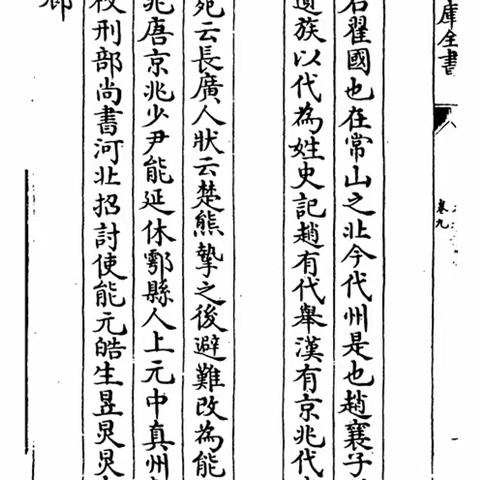 庫全書
卷九
右翟國也在常山之北今代州是也趙襄子
遺族以代為姓史記趙有代舉漢有京兆代
苑云長廣人狀云楚熊摯之後避難改為能
兆唐京兆少尹能延休鄠縣人上元中真州
校刑部尚書河北招討使能元皓生昱炅炅
鄉